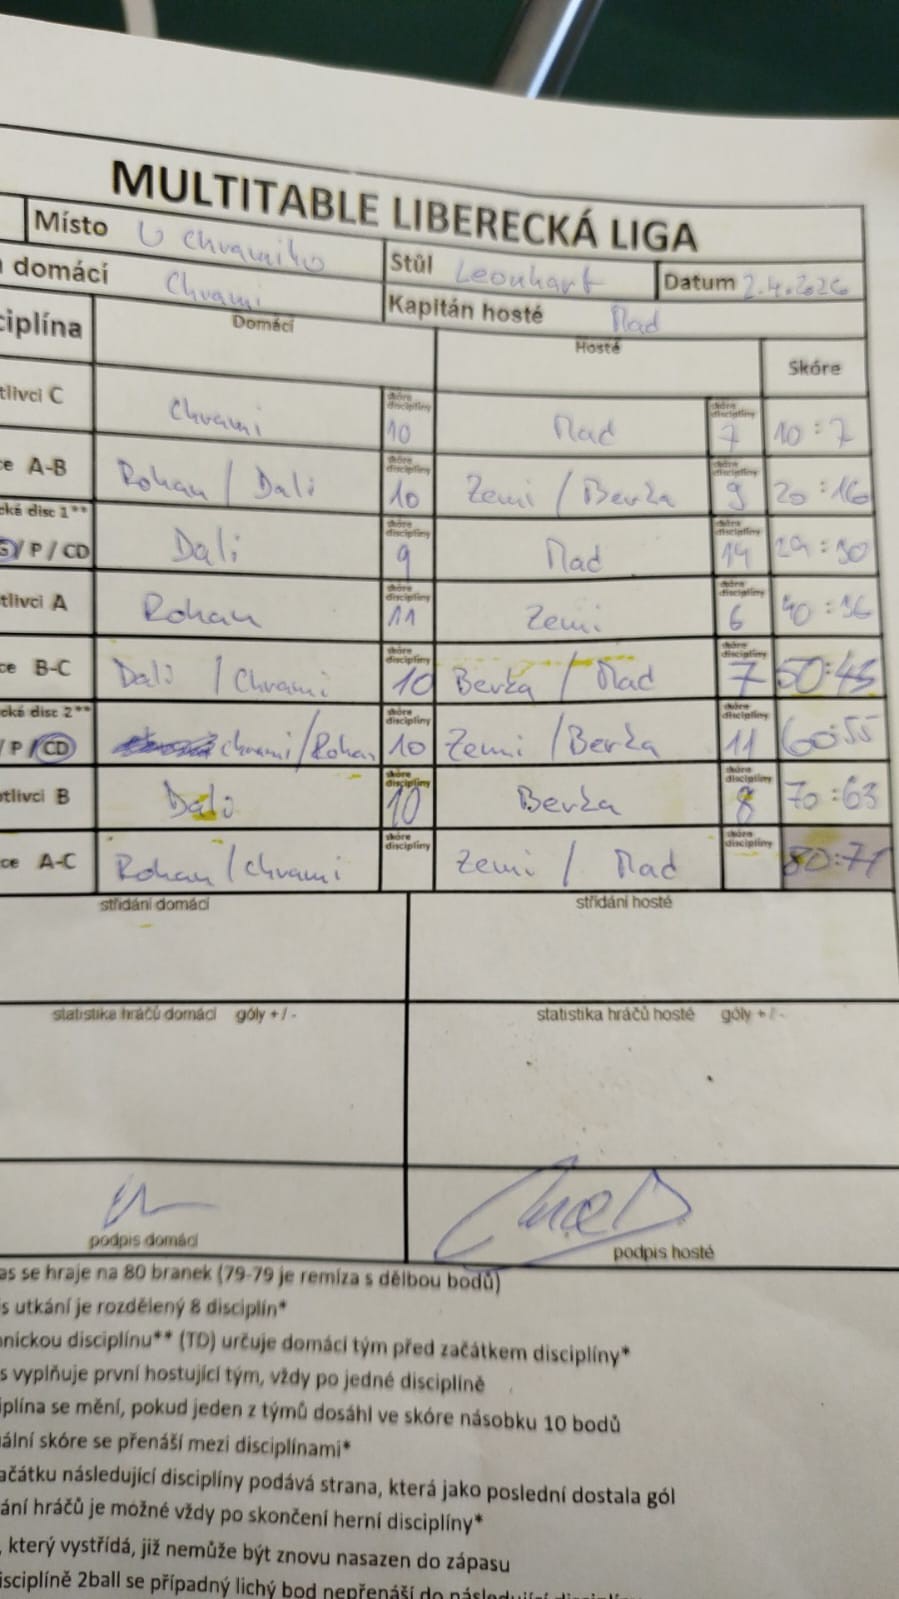 MULTITABLE LIBERECKÁ LIGA
Místo U Chramiho
domácí Chrami Stůl Leonhart Datum 2.4.2026
Kapitán hosté Mad
ciplína Domácí Hosté Skóre
tlivci C Chrami skóre disciplíny 10 Mad skóre disciplíny 7 10:7
ce A-B Rohan / Dali skóre disciplíny 10 Zemi / Berža skóre disciplíny 9 20:16
cká disc 1**
S/ P / CD Dali skóre disciplíny 9 Mad skóre disciplíny 14 29:30
tlivci A Rohan skóre disciplíny 11 Zemi skóre disciplíny 6 40:36
ce B-C Dali / Chrami skóre disciplíny 10 Berža / Mad skóre disciplíny 7 50:43
cká disc 2**
/ P / CD Chrami/Rohan skóre disciplíny 10 Zemi / Berža skóre disciplíny 11 60:55
tlivci B Dali skóre disciplíny 10 Berža skóre disciplíny 8 70:63
ce A-C Rohan / Chrami skóre disciplíny Zemi / Mad skóre disciplíny 80:71
střídání domácí střídání hosté
statistika hráčů domácí góly +/- statistika hráčů hosté góly +/-
podpis domácí podpis hosté
as se hraje na 80 branek (79-79 je remíza s dělbou bodů)
s utkání je rozdělený 8 disciplín*
hnickou disciplínu** (TD) určuje domácí tým před začátkem disciplíny*
s vyplňuje první hostující tým, vždy po jedné disciplíně
iplína se mění, pokud jeden z týmů dosáhl ve skóre násobku 10 bodů
ální skóre se přenáší mezi disciplínami*
ačátku následující disciplíny podává strana, která jako poslední dostala gól
ání hráčů je možné vždy po skončení herní disciplíny*
, který vystřídá, již nemůže být znovu nasazen do zápasu
isciplíně 2ball se případný lichý bod nepřenáší do